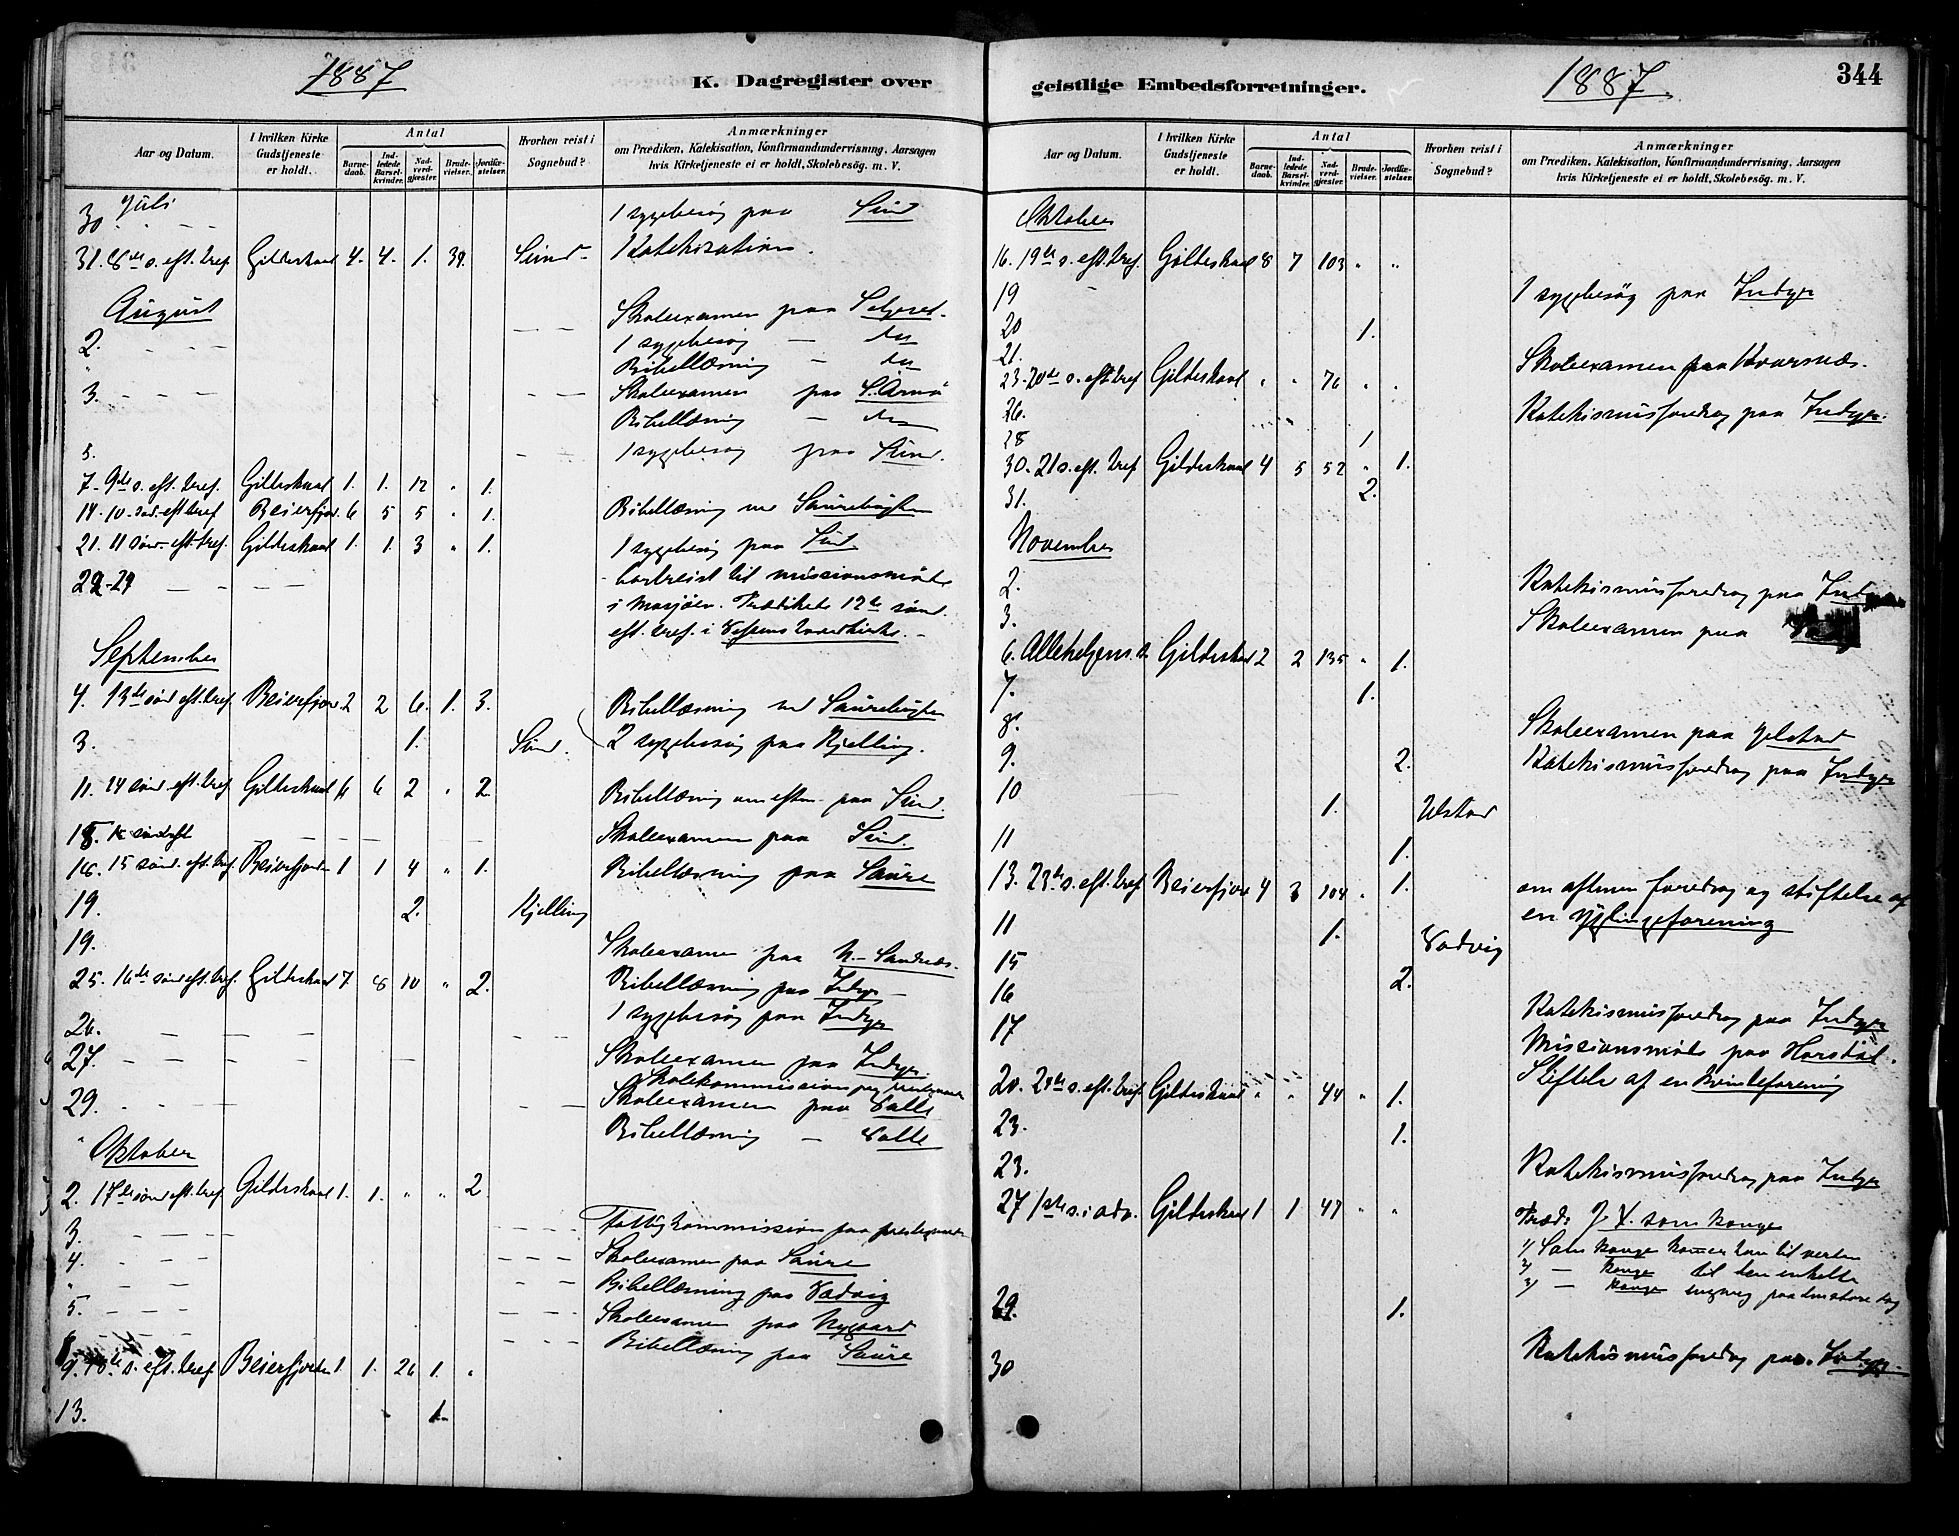 1887
K. Dagregister over
Aar og Datum.
I hvilken Kirke Gudstjeneste er holdt.
Antal
Barnedaab.
Indledede Barselkvinder.
Nadverdgjæster.
Brudevielser.
Jordfæstelser.
Hvorhen reist i Sognebud?
Anmærkninger
om Prædiken, Katekisation, Konfirmandundervisning, Aarsagen
hvis Kirketjeneste ei er holdt, Skolebesög. m. V.
Juli
30 1 sygebesøg paa Sund
31. 8de s. eft. tref. Gildeskaal 4. 4. 1. 39. Sund Katekisation.
August
2. Skoleexamen paa
1 sygebesøg — do
" Bibellæsning — do
3. Skoleexamen paa S. Arnö
Bibellæsning — do
5. 1 sygebesøg paa Sund.
7. 9de s. eft. tref. Gildeskaal 1. 1. 12 " 1.
14. 10. sönd. eft tref Beierfjord 6 5 5 " 1. Bibellæsning ved Saurebugten
21. 11 sönd. eft. tref. Gildeskaal 1. 1. 3 " 1. 1 sygebesøg paa Sund
22-29 bortreist til missionsmöde
i Mosjöen. Prædikede 12te sönd.
eft. tref. i Vefsens hovedkirke.
September
4. 13de sönd eft. tref. Beierfjord 2 2 6. 1. 3. Bibellæsning ved Saurebugten
3. 1. Sund. 2 sygebesøg paa Kjelling.
11. 14 sönd. eft. tref Gildeskaal 6 2 " 2 Bibellæsning om eftm. paa Sund.
Skoleexamen paa Sund.
15 sönd. eft. tref. Beierfjorden 1 1 4 " 1. Bibellæsning paa Saure
19. 2. Kjelling
19. Skoleexamen paa N. Sandnæs.
25. 16de sönd eft. tref. Gildeskaal 7. 8 10 " 2. Bibellæsning paa Indyr
26. 1 sygebesøg paa Indyr
27. Skoleexamen paa Indyr.
Skolekommission paa
29. Skoleexamen paa Valle
" Bibellæsning — Valle
Oktober
2. 17de sönd eft. tref. Gildeskaal 1. 1. " " 2
3. Fattigkommission paa
4. Skoleexamen paa Saure
" Bibellæsning paa Vadvig
5. Skoleexamen paa Nygaard
Bibellæsning paa Saure
9. 18de s. eft. tref Beierfjorden 1 1. 26 1. "
13. 1.
geistlige Embedsforretninger.
1887.
344
Aar og Datum.
I hvilken Kirke Gudstjeneste er holdt.
Antal
Barnedaab.
Indledede Barselkvinder.
Nadverdgjæster.
Brudevielser.
Jordfæstelser.
Hvorhen reist i Sognebud?
Anmærkninger
om Prædiken, Katekisation, Konfirmandundervisning, Aarsagen
hvis Kirketjeneste ei er holdt, Skolebesög. m. V.
Oktober
16. 19de s. eft. tref. Gildeskaal 8 7 103 " "
19 1 sygebesøg paa Indyr
20 1.
21. Skoleexamen paa Kvarsnæs.
23. 20de s. eft tref Gildeskaal " " 76 " "
26. Katekismusforedrag paa Indyr.
28 1
30. 21 s. eft. tref Gildeskaal 4 5 52 " 1.
31. 2.
November
2. Katekismusforedrag paa Indyr
3. Skoleexamen paa
6. Allehelgens d. Gildeskaal 2 2 135 " 1.
7. 1.
8. Skoleexamen paa Gjelstad
9. 2. Katekismusforedrag paa Indyr
10 1. Ulstad
11 1.
13. 23de s. eft. tref Beierfjord 4 3 104 " 1. om aftenen foredrag og stiftelse af
en Ynglingeforening
11 1. Vadvig
15 2.
16 Katekismusforedrag paa Indyr
17 Missionsmöde paa Horsdal.
20. s. eft. tref. Gildeskaal " " 44 " 1. Stiftelse af en Kvindeforening
23. 1.
23. Katekismusforedrag paa Indyr
27 1ste s. i adv. Gildeskaal 1 1 47 " " Præd: J. X. som konge
1) Som konge kommer han til verden
2) — konge til den enkelte
3) — konge engang paa den store dag
29. 1.
30 Katekismusforedrag paa Indyr.